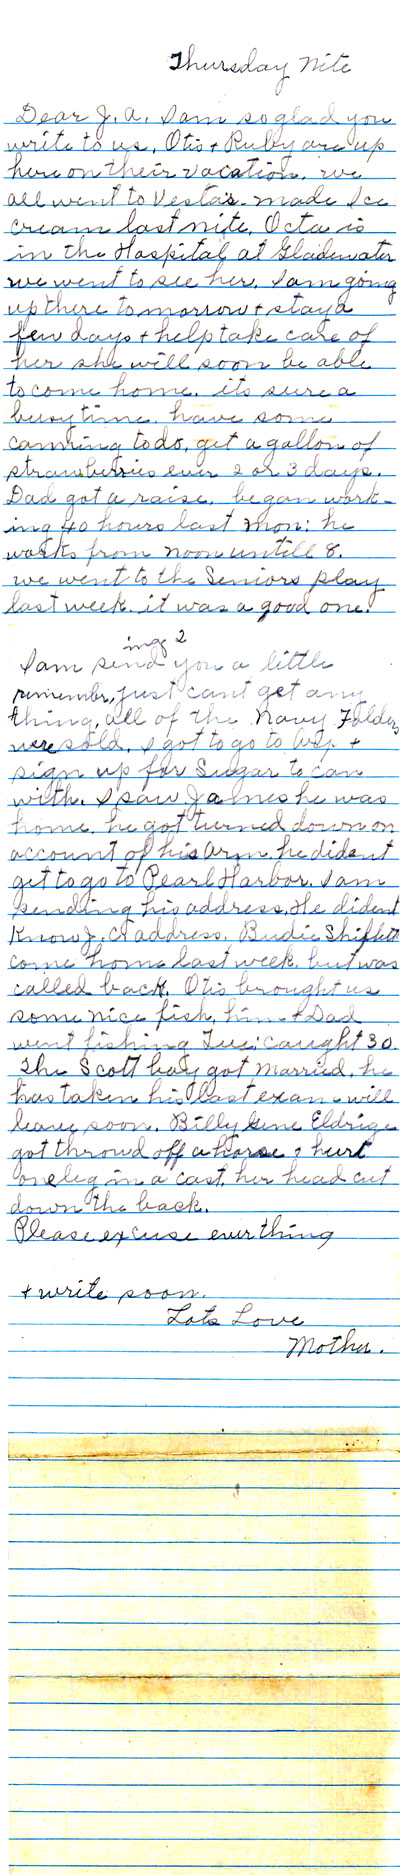 Thursday Nite
Dear J. A. I am so glad you
write to us. Otis + Ruby are up
here on their vacation. we
all went to Vesta's - made Ice
cream last nite. Octa is
in the Hospital at Gladewater
we went to see her. I am going
up there tomorrow + stay a
few days + help take care of
her she will soon be able
to come home. its sure a
busy time. have some
canning to do, get a gallon of
strawberries ever 2 or 3 days.
Dad got a raise. began work-
ing 40 hours last Mon: he
works from noon untill 8.
we went to the Seniors play
last week. it was a good one.
2
I am sending you a little
remember, just cant get any
thing, all of the Navy Folders
were sold. I got to go to +
sign up for Sugar to can
with. I saw James he was
home. he got turned down on
account of his arm. he dident
get to go to Pearl Harbor. I am
sending his address. He dident
Know J. A address. Budie Shiflett
come home last week. but was
called back. Otis brought us
some nice fish, him + Dad
went fishing Tue: caught 30.
The Scott boy got married. he
has taken his last exam will
leave soon. Billy Gene Eldrige
got throwd off a horse & hurt
one leg in a cast. her head cut
down the back.
Please excuse everthing
+ write soon.
Lots Love
Mother.